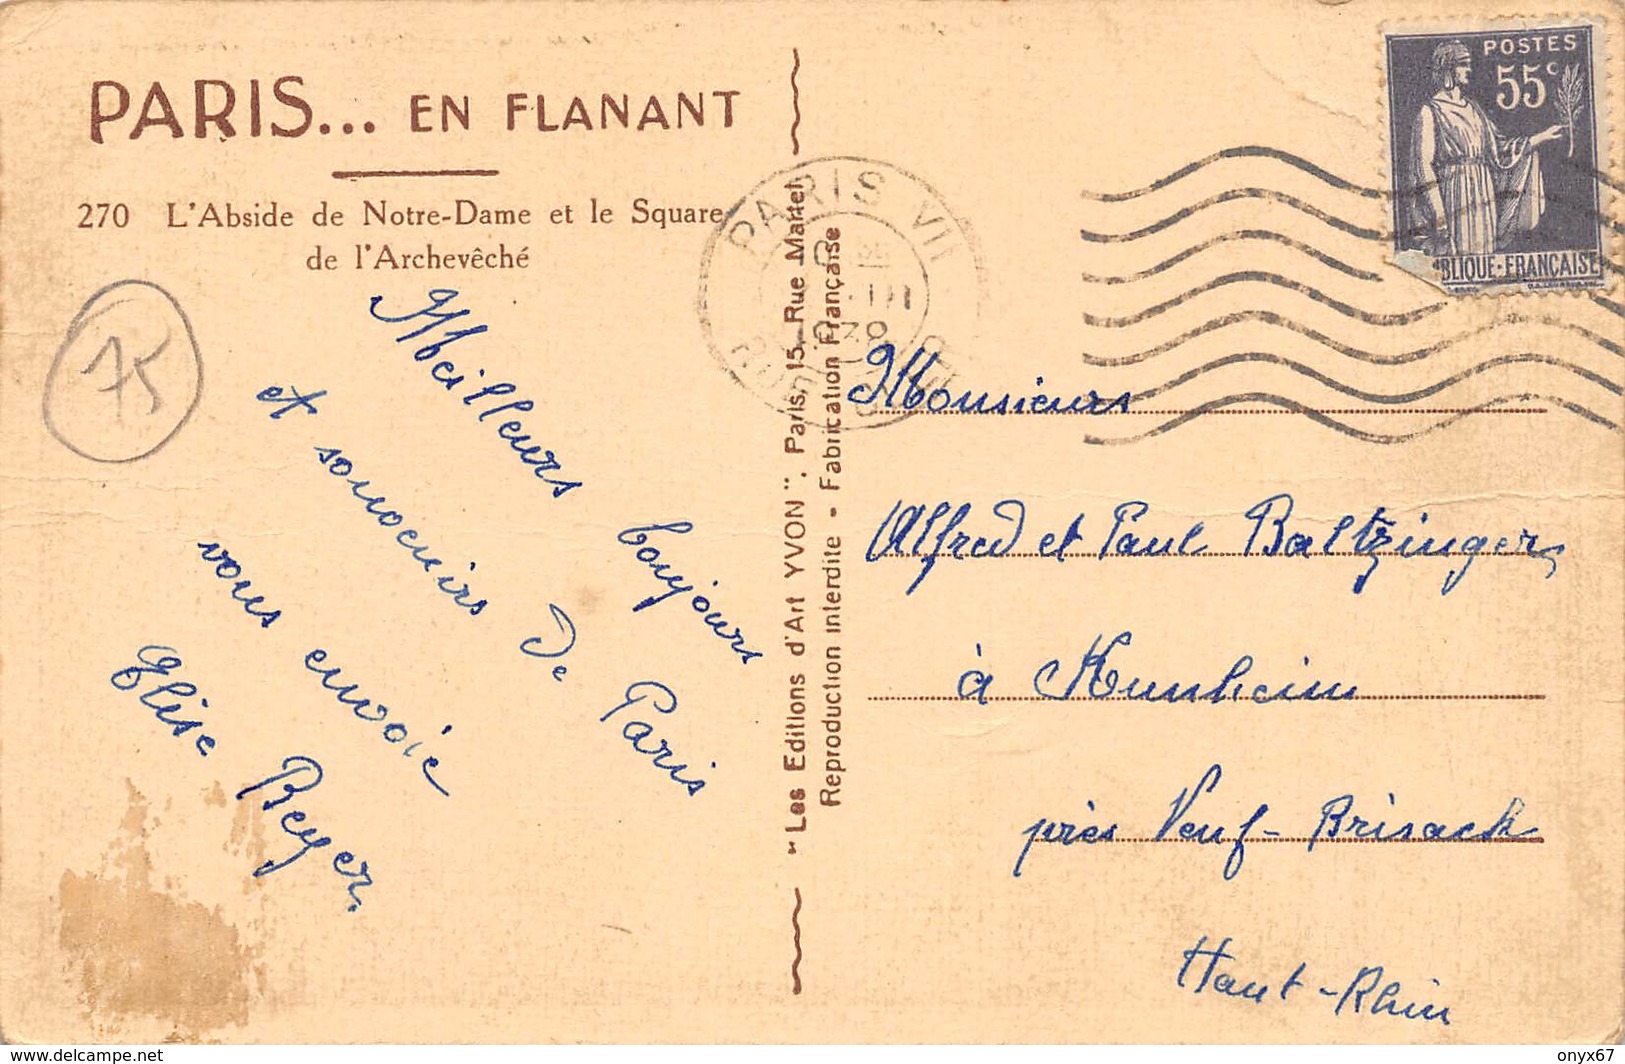 PARIS... EN FLANANT
270 L'Abside de Notre-Dame et le Square
de l'Archevêché
75
Meilleurs bonjours
et souvenirs de Paris
vous envoie
Elise Beyer
"Les Editions d'Art YVON". Paris, 15, Rue Martel
Reproduction Interdite - Fabrication Française
PARIS VII
POSTES
55c
BLIQUE·FRANÇAISE
Monsieurs
Alfred et Paul Baltzinger
à Kunheim
près Neuf-Brisack
Haut-Rhin
delcampe.net
onyx67